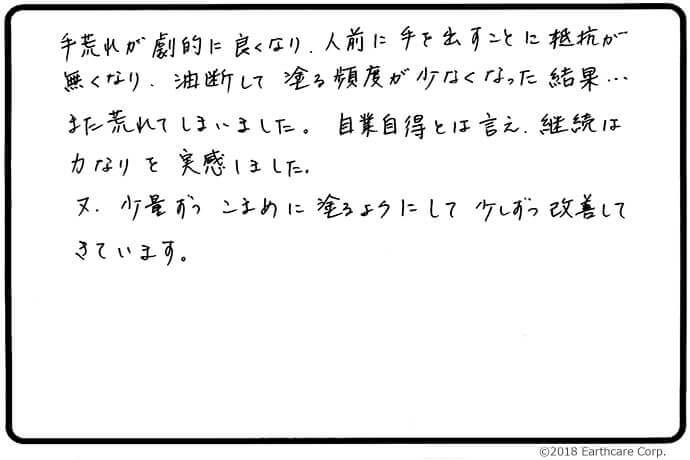 手荒れが劇的に良くなり、人前に手を出すことに抵抗が
無くなり、油断して塗る頻度が少なくなった結果…
また荒れてしまいました。自業自得とは言え、継続は
力なりを実感しました。
又、少量ずつこまめに塗るようにして少しずつ改善して
きています。
©2018 Earthcare Corp.